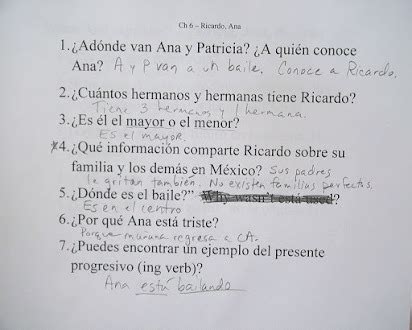 Ch 6 – Ricardo, Ana
1. ¿Adónde van Ana y Patricia? ¿A quién conoce
Ana? A y P van a un baile. Conoce a Ricardo.
2. ¿Cuántos hermanos y hermanas tiene Ricardo?
Tiene 3 hermanos y 1 hermana.
3. ¿Es él el mayor o el menor?
Es el mayor.
*4. ¿Qué información comparte Ricardo sobre su
familia y los demás en México? Sus padres
le gritan también. No existen familias perfectas.
5. ¿Dónde es el baile?" Why wasn't está used?
Es en el centro
6. ¿Por qué Ana está triste?
Porque mañana regresa a CA.
7. ¿Puedes encontrar un ejemplo del presente
progresivo (ing verb)?
Ana está bailando